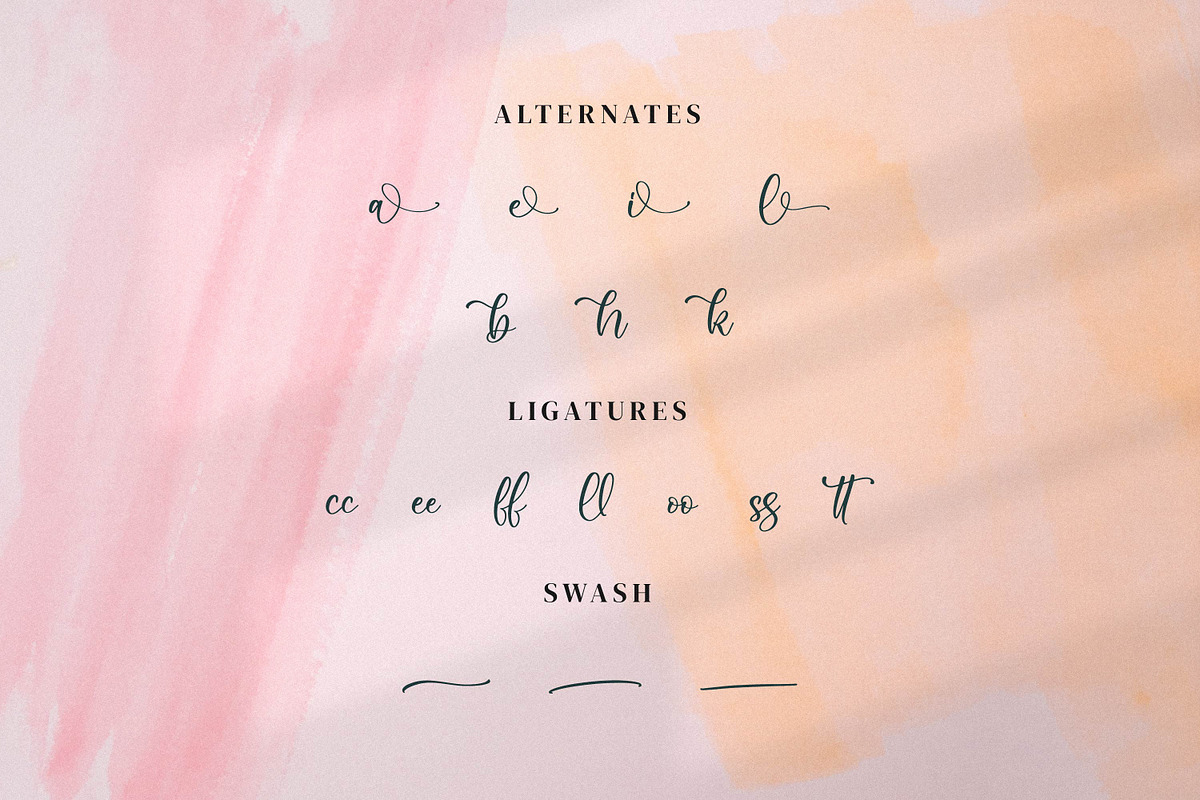 ALTERNATES
a e i l
b h k
LIGATURES
cc ee ff ll oo ss tt
SWASH